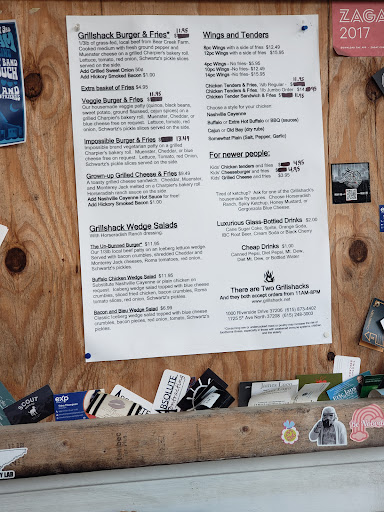 Grillshack Burger & Fries* 11.95
1/3lb of grass-fed, local beef from Bear Creek Farm.
Cooked medium with fresh ground pepper and
Muenster cheese on a grilled Charpier's bakery roll.
Lettuce, tomato, red onion, Schwartz's pickle
slices served on the side.
Add Grilled Sweet Onion 50¢
Add Hickory Smoked Bacon $1.00
Extra basket of Fries $4.95
Veggie Burger & Fries 11.95
Our housemade veggie patty (quinoa, black beans,
sweet potato, ground flaxseed, cajun spices) on a
grilled Charpier's bakery roll. Muenster, Cheddar, or
blue cheese free on request. Lettuce, tomato, red
onion, Schwartz's pickle slices served on the side.
Impossible Burger & Fries 13.49
Impossible brand vegetarian patty on a grilled
Charpier's bakery roll. Muenster, Cheddar, or blue
cheese free on request. Lettuce, Tomato, red onion,
Schwartz's pickle slices served on the side.
Grown-up Grilled Cheese & Fries $9.49
A toasty grilled cheese sandwich. Cheddar, Muenster,
and Monterey Jack melted on a Charpier's bakery roll.
Horseradish ranch sauce on the side.
Add Nashville Cayenne Hot Sauce for free!
Add Hickory Smoked Bacon $1.00
Grillshack Wedge Salads
With Horseradish Ranch dressing.
The Un-Bunned Burger* $11.95
Our 1/3lb local beef patty on an iceberg lettuce wedge.
Served with bacon crumbles, shredded Cheddar and
Monterey Jack cheeses, Roma tomatoes, red onion,
Schwartz's pickles.
Buffalo Chicken Wedge Salad $11.95
Substitute Nashville Cayenne or plain chicken on
request. Iceberg wedge salad topped with blue cheese
crumbles, sliced fried chicken, bacon crumbles, Roma
tomato slices, red onion, Schwartz's pickles.
Bacon and Bleu Wedge Salad $8.99
Classic iceberg wedge salad topped with blue cheese
crumbles, bacon pieces, red onion, tomato, Schwartz's
pickles.
Wings and Tenders
6pc Wings with a side of fries $12.49
12pc Wings with a side of fries $15.95
4pc Wings - No fries $5.95
10pc Wings -No fries $12.49
14pc Wings -No fries $15.95
Chicken Tenders & Fries, ½lb Regular 11.95
Chicken Tenders & Fries, 1lb Jumbo Order
Chicken Tender Sandwich & Fries 11.95
Choose a style for your chicken:
Nashville Cayenne
Buffalo or Extra Hot Buffalo or BBQ (sauces)
Cajun or Old Bay (dry rubs)
Somewhat Plain (Salt, Pepper, Garlic)
For newer people:
Kids' Chicken tenders and fries 6.95
Kids' Cheeseburger and fries 6.95
Kids' Grilled Cheese and fries
Tired of ketchup? Ask for one of the Grillshack's
housemade fry sauces. Choose Horseradish
Ranch, Spicy Ketchup, Honey Mustard, or
Gorgonzola Blue Cheese
Luxurious Glass-Bottled Drinks
Cane Sugar Coke, Sprite, Orange Soda,
IBC Root Beer, Cream Soda or Black Cherry
Cheap Drinks $1.00
Canned Pepsi, Diet Pepsi, Mt. Dew,
Diet Mt. Dew, or Bottled Water
There are Two Grillshacks
And they both accept orders from 11AM-8PM
www.grillshack.net
1000 Riverside Drive 37206
1725 St Ave North 37208
ZAGA
2017
SCOUT
exp
ABSOLUTE